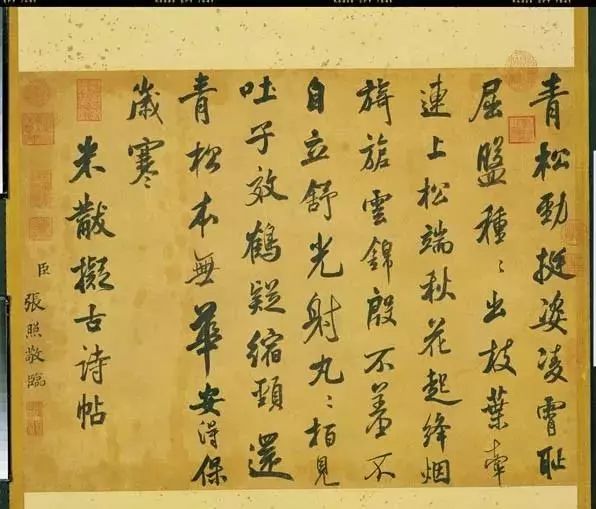 青松勁挺姿凌霄恥
屈盤種〻出枝葉牽
連上松端秋花起絳烟
旖旎雲錦殷不羞不
自立舒光射丸〻柏見
吐子效鶴疑縮頸還
青松本無華安得保
歲寒
米黻擬古詩帖
臣張照敬臨